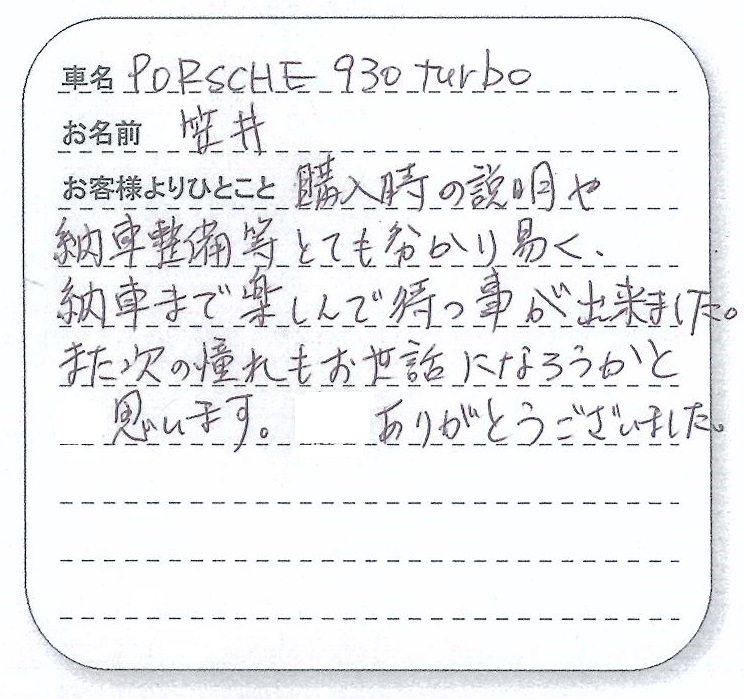 車名 PORSCHE 930 turbo
お名前 笠井
お客様よりひとこと 購入時の説明や
納車整備等とても分かり易く、
納車まで楽しんで待つ事が出来ました。
また次の憧れもお世話になろうかと
思います。 ありがとうございました。